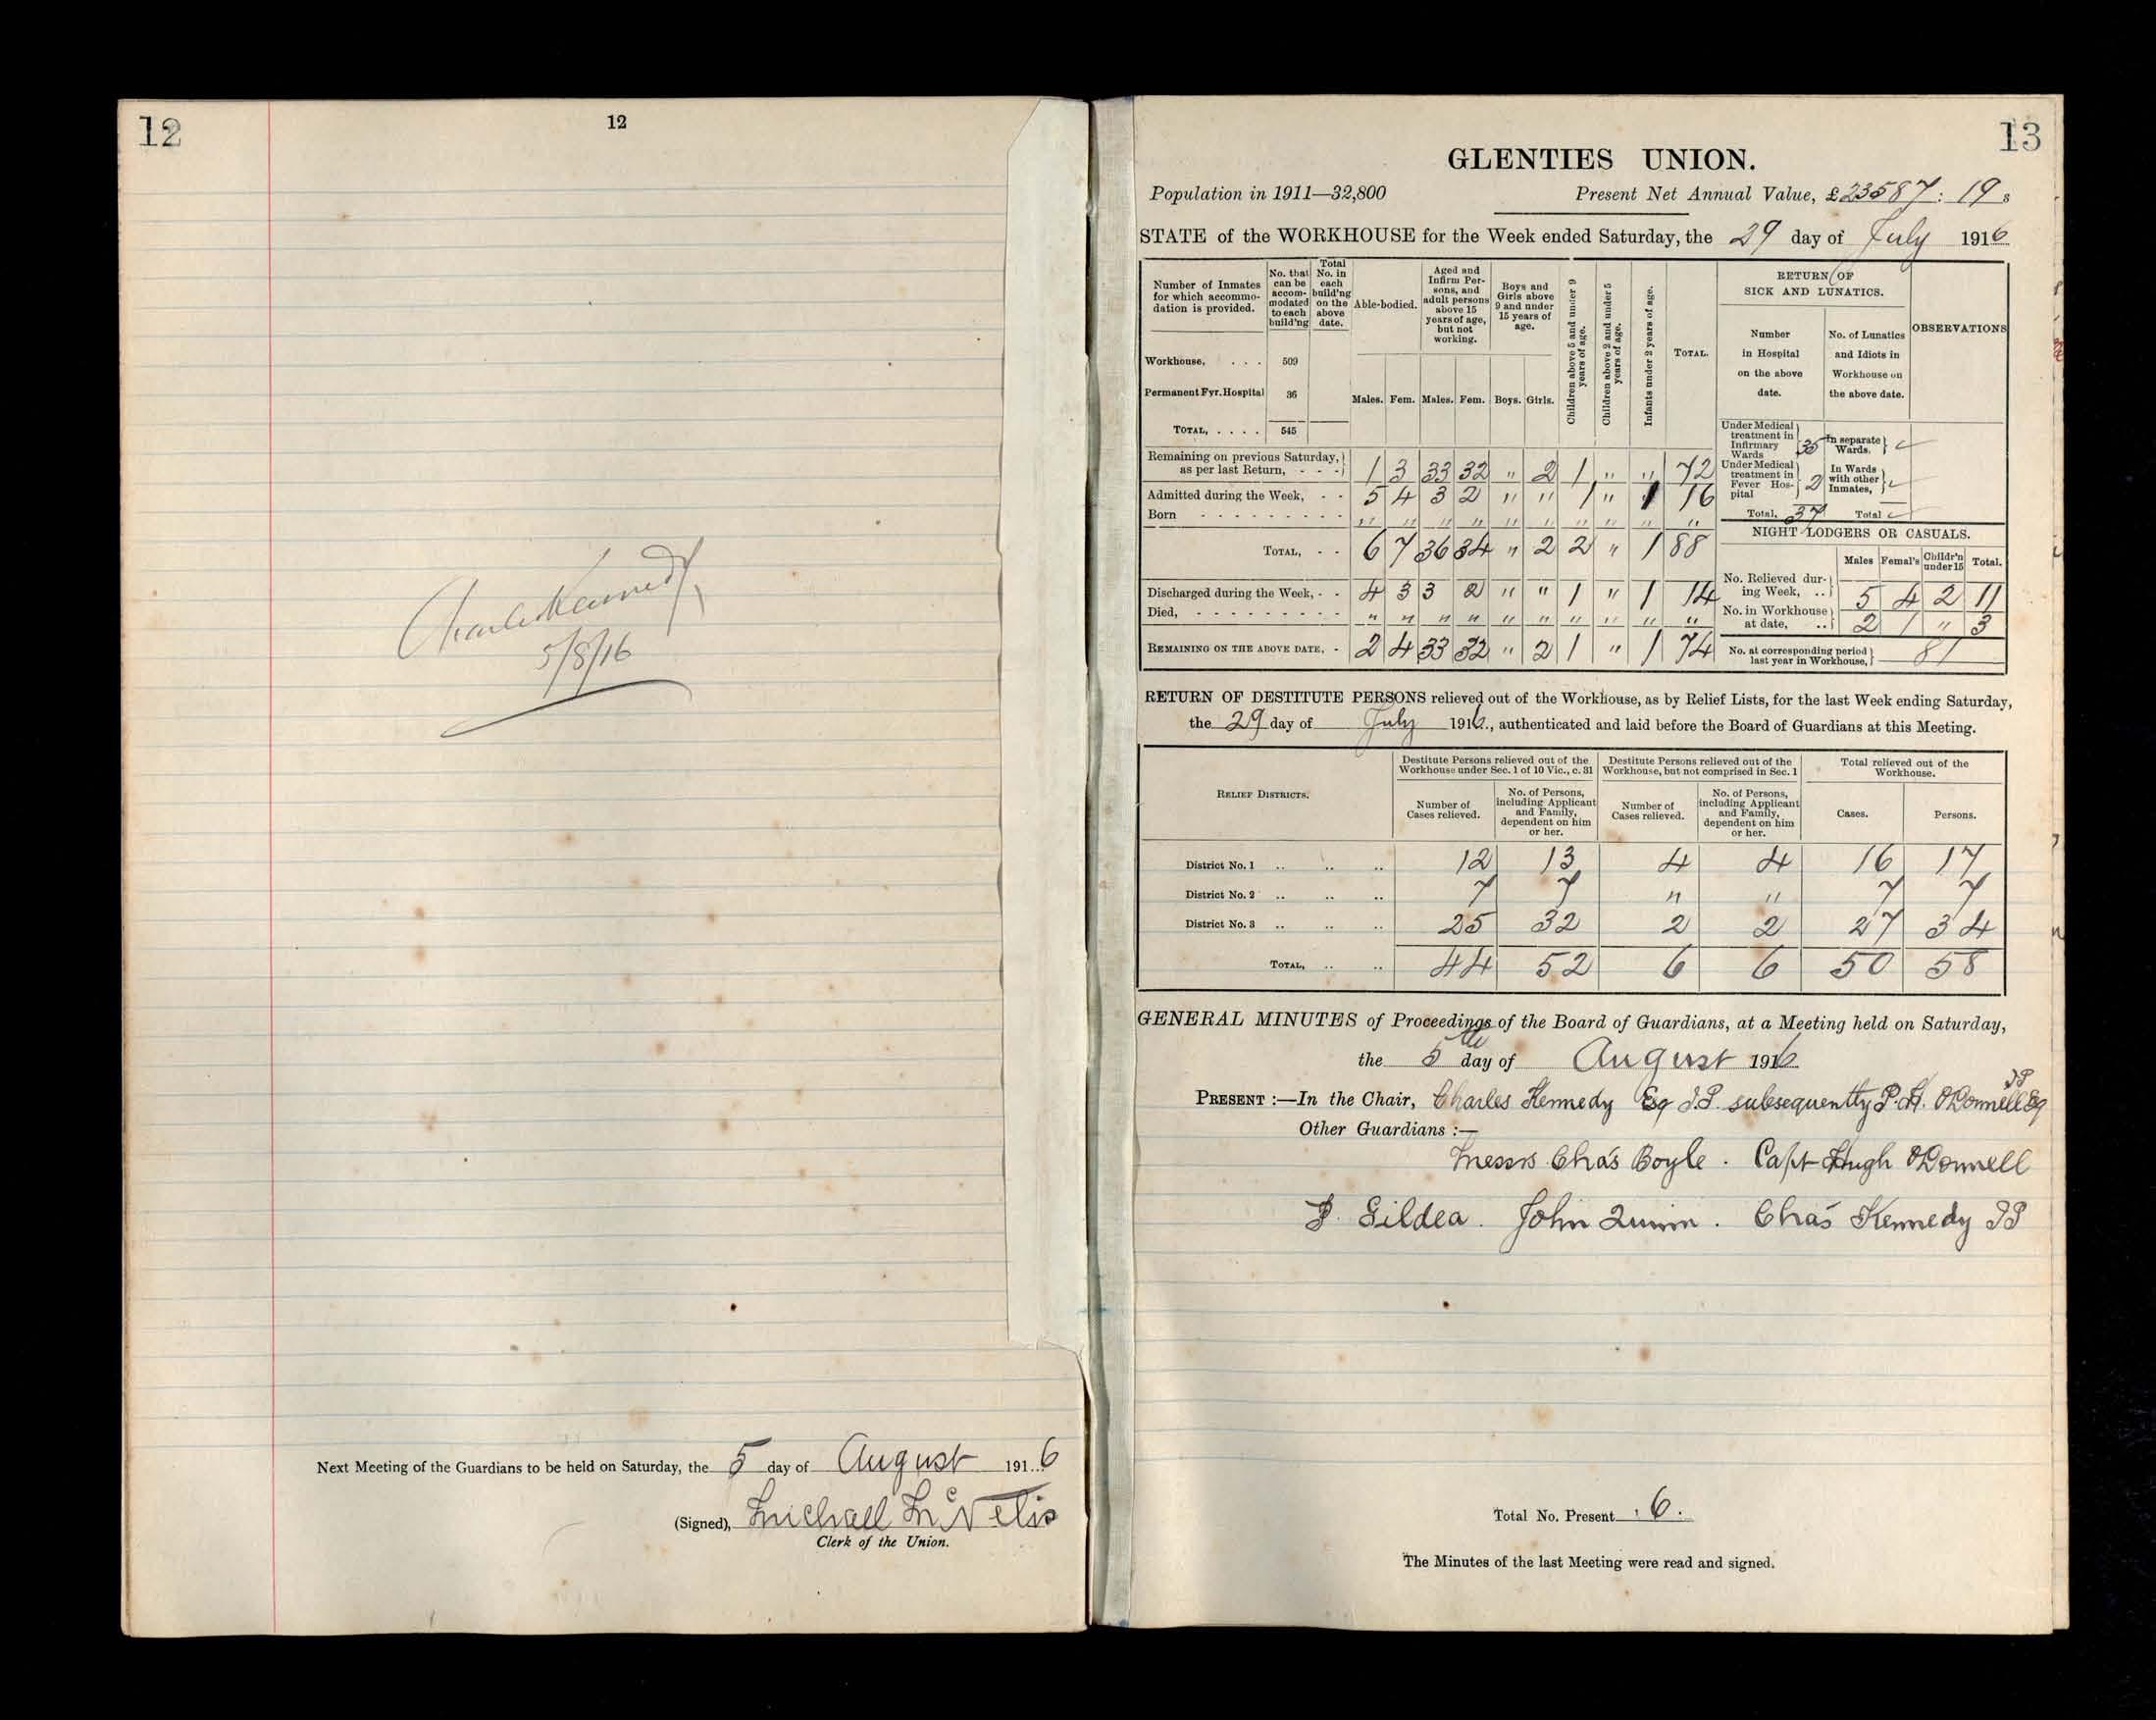 12
12
Charles Kennedy
5/8/16
Next Meeting of the Guardians to be held on Saturday, the 5 day of August 1916
(Signed), Michael McNelis
Clerk of the Union.
13
GLENTIES UNION.
Population in 1911—32,800 Present Net Annual Value, £23587: 19 s
STATE of the WORKHOUSE for the Week ended Saturday, the 29 day of July 1916
Number of Inmates for which accommodation is provided. No. that can be accommodated to each build'ng Total No. in each build'ng on the above date. Able-bodied. Aged and Infirm Persons, and adult persons above 15 years of age, but not working. Boys and Girls above 9 and under 15 years of age. Children above 5 and under 9 years of age. Children above 2 and under 5 years of age. Infants under 2 years of age. TOTAL. RETURN OF SICK AND LUNATICS. OBSERVATIONS
Number in Hospital on the above date. No. of Lunatics and Idiots in Workhouse on the above date.
Workhouse, . . . 509
Permanent Fvr. Hospital 36
TOTAL, . . . . 545
Males. Fem. Males. Fem. Boys. Girls.
Remaining on previous Saturday, as per last Return, - - - 1 3 33 32 " 2 1 " " 72
Admitted during the Week, - - 5 4 3 2 " " 1 " 1 16
Born - - - - - - - - - " " " " " " " " " "
TOTAL, - - 6 7 36 34 " 2 2 " 1 88
Discharged during the Week, - - 4 3 3 2 " " 1 " 1 14
Died, - - - - - - - - - " " " " " " " " " "
REMAINING ON THE ABOVE DATE, - 2 4 33 32 " 2 1 " 1 74
Under Medical treatment in Infirmary Wards 35 In separate Wards.
Under Medical treatment in Fever Hospital 2 In Wards with other Inmates,
Total, 37 Total
NIGHT LODGERS OR CASUALS.
Males Femal's Childr'n under 15 Total.
No. Relieved during Week, .. 5 4 2 11
No. in Workhouse at date, .. 2 1 " 3
No. at corresponding period last year in Workhouse, 81
RETURN OF DESTITUTE PERSONS relieved out of the Workhouse, as by Relief Lists, for the last Week ending Saturday,
the 29 day of July 1916., authenticated and laid before the Board of Guardians at this Meeting.
RELIEF DISTRICTS. Destitute Persons relieved out of the Workhouse under Sec. 1 of 10 Vic., c. 31 Destitute Persons relieved out of the Workhouse, but not comprised in Sec. 1 Total relieved out of the Workhouse.
Number of Cases relieved. No. of Persons, including Applicant and Family, dependent on him or her. Number of Cases relieved. No. of Persons, including Applicant and Family, dependent on him or her. Cases. Persons.
District No. 1 .. .. .. 12 13 4 4 16 17
District No. 2 .. .. .. 7 7 " " 7 7
District No. 3 .. .. .. 25 32 2 2 27 34
TOTAL, .. .. 44 52 6 6 50 58
GENERAL MINUTES of Proceedings of the Board of Guardians, at a Meeting held on Saturday,
the 5th day of August 1916
PRESENT :—In the Chair, Charles Kennedy Esq J.P. subsequently P.H. O'Donnell JP Esq
Other Guardians :—
Messrs Cha's Boyle. Capt Hugh O'Donnell
P. Gildea. John Quinn. Cha's Kennedy JP
Total No. Present 6.
The Minutes of the last Meeting were read and signed.